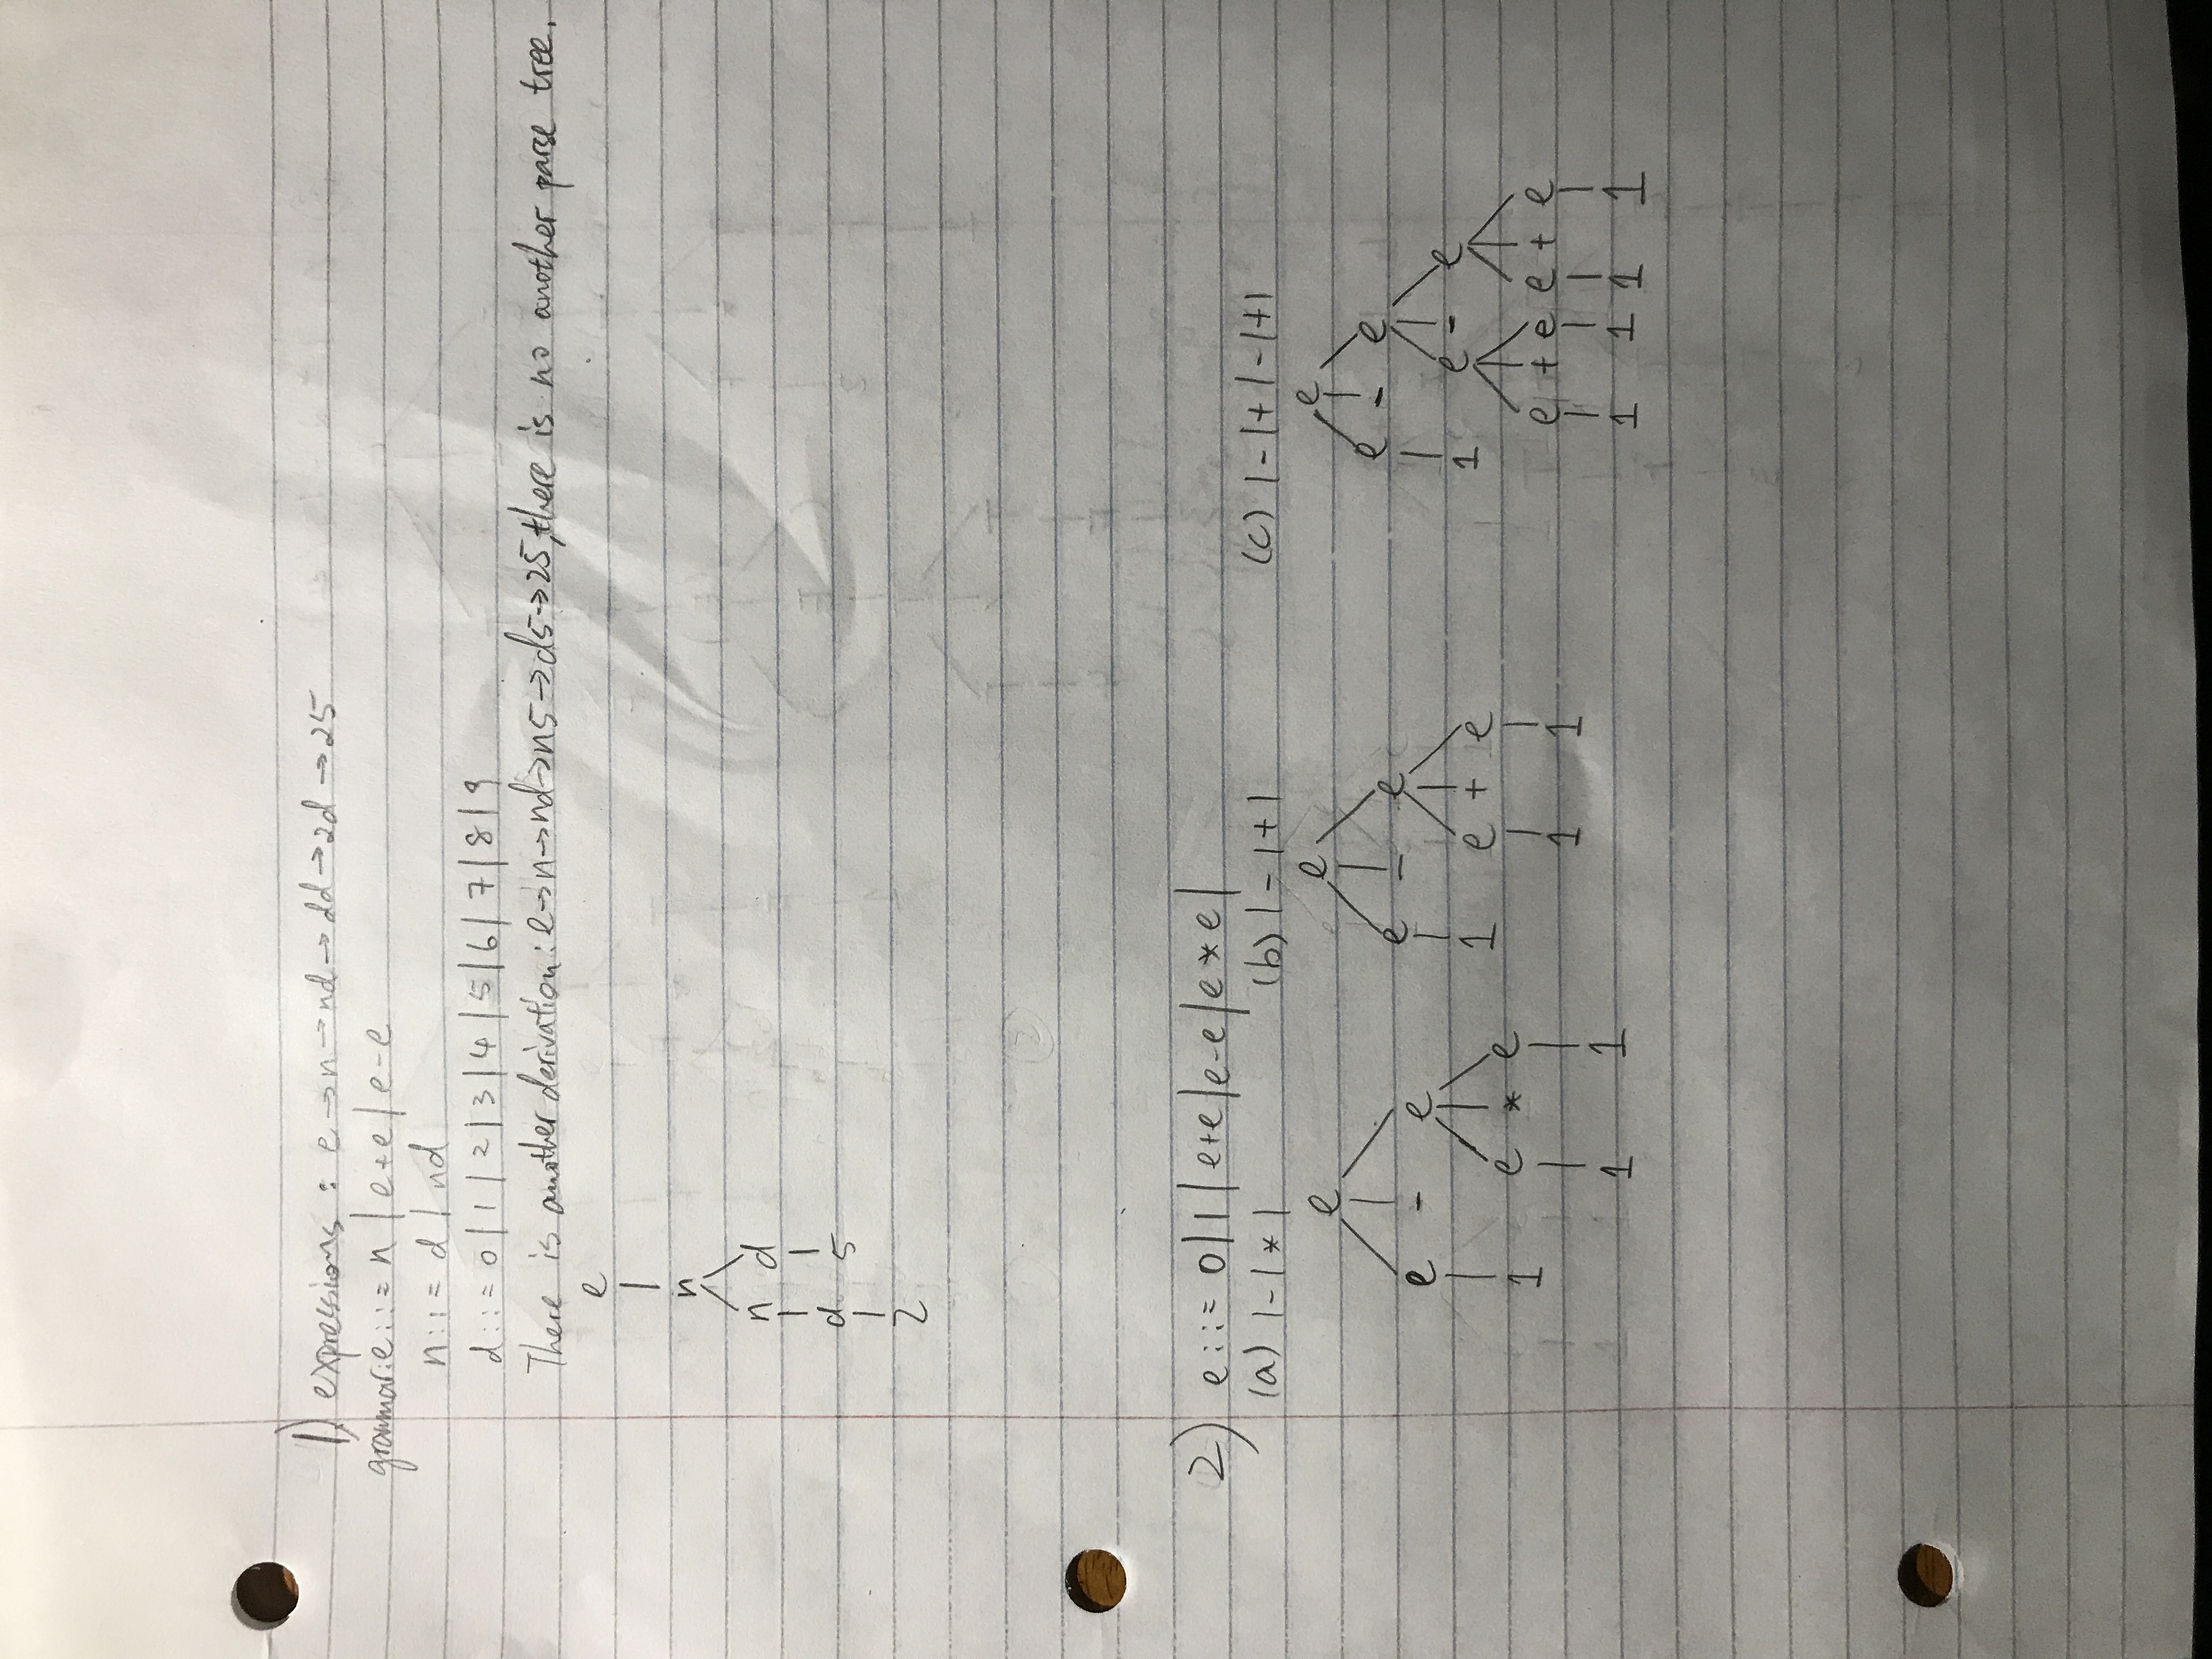 1) expressions : e → n → nd → dd → 2d → 25
grammar: e ::= n | e+e | e-e
n ::= d | nd
d ::= 0 | 1 | 2 | 3 | 4 | 5 | 6 | 7 | 8 | 9
There is another derivation : e→n→nd→n5→d5→25, there is no another parse tree.
e
n
n d
d 5
2
2) e ::= 0 | 1 | e+e | e-e | e * e |
(a) 1-1 * 1 (b) 1-1+1 (c) 1-1+1-1+1
e e e
e - e e - e e - e
1 e * e 1 e + e 1 e - e
1 1 1 1 e + e e + e
1 1 1 1